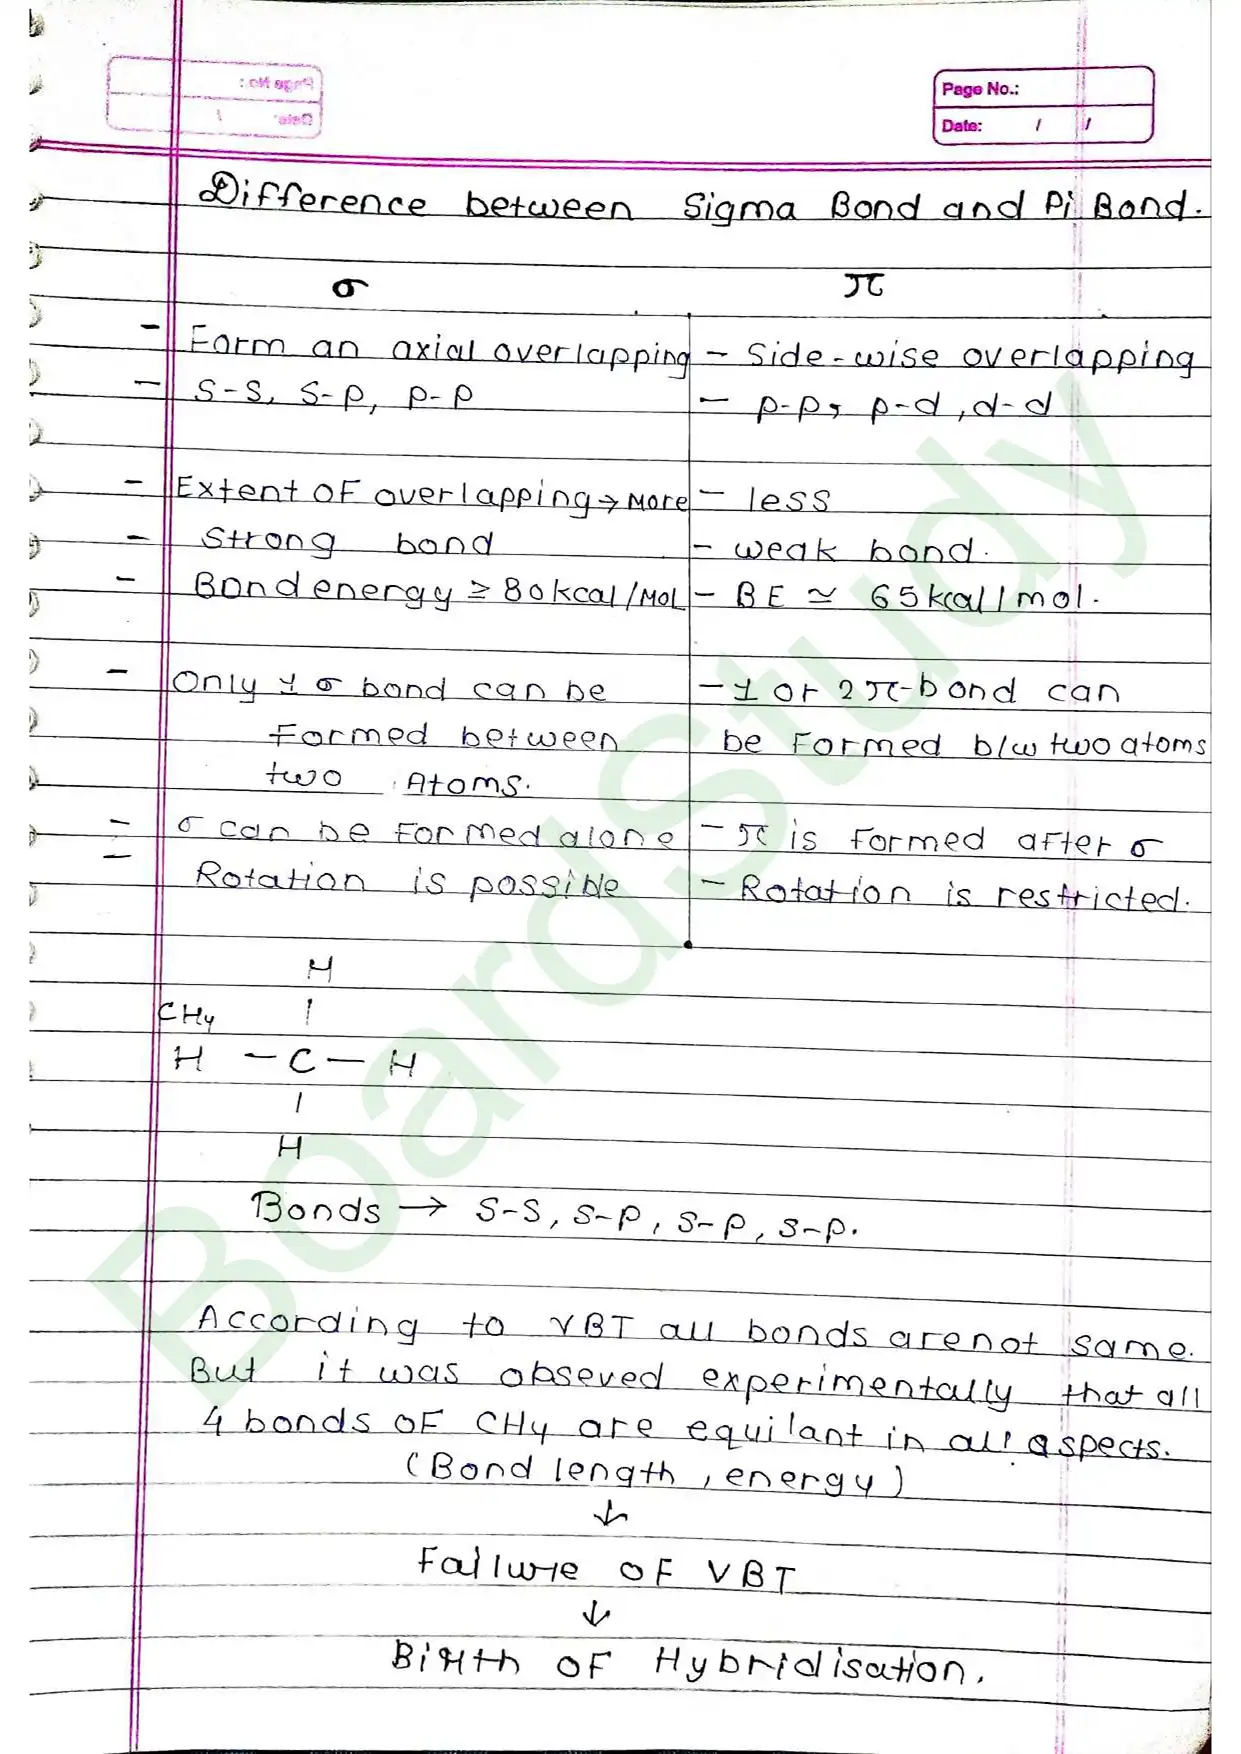 Page No.:
Date: / /
Difference between Sigma Bond and Pi Bond.
σ π
- Form an axial overlapping - Side-wise overlapping
- S-S, S-P, P-P - P-P, P-d, d-d
- Extent of overlapping → More - less
- Strong bond - weak bond.
- Bond energy ≥ 80 kcal/mol - BE ≃ 65 kcal/mol.
- Only 1 σ bond can be - 1 or 2 π-bond can
formed between be formed b/w two atoms
two Atoms.
- σ can be formed alone - π is formed after σ
- Rotation is possible - Rotation is restricted.
H
CH4 |
H - C - H
|
H
Bonds → S-S, S-P, S-P, S-P.
According to VBT all bonds are not same.
But it was obseved experimentally that all
4 bonds of CH4 are equilant in all aspects.
(Bond length, energy)
↓
Failure of VBT
↓
Birth of Hybridisation.
BoardStudy